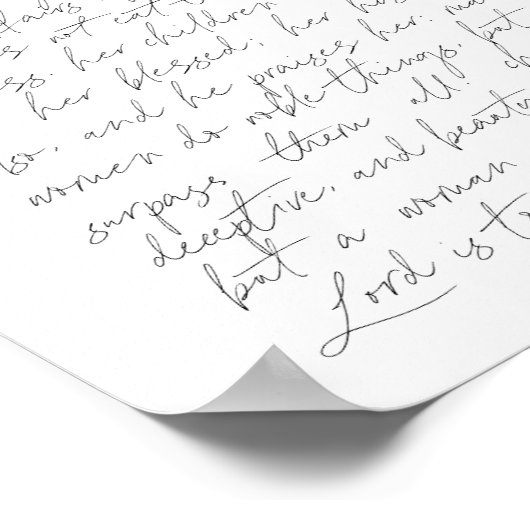 not eat
her children
her blessed; her
so, and he praises her: ma
women do noble things, but
surpass them all. ch
deceptive, and beauty
but a woman
Lord is to